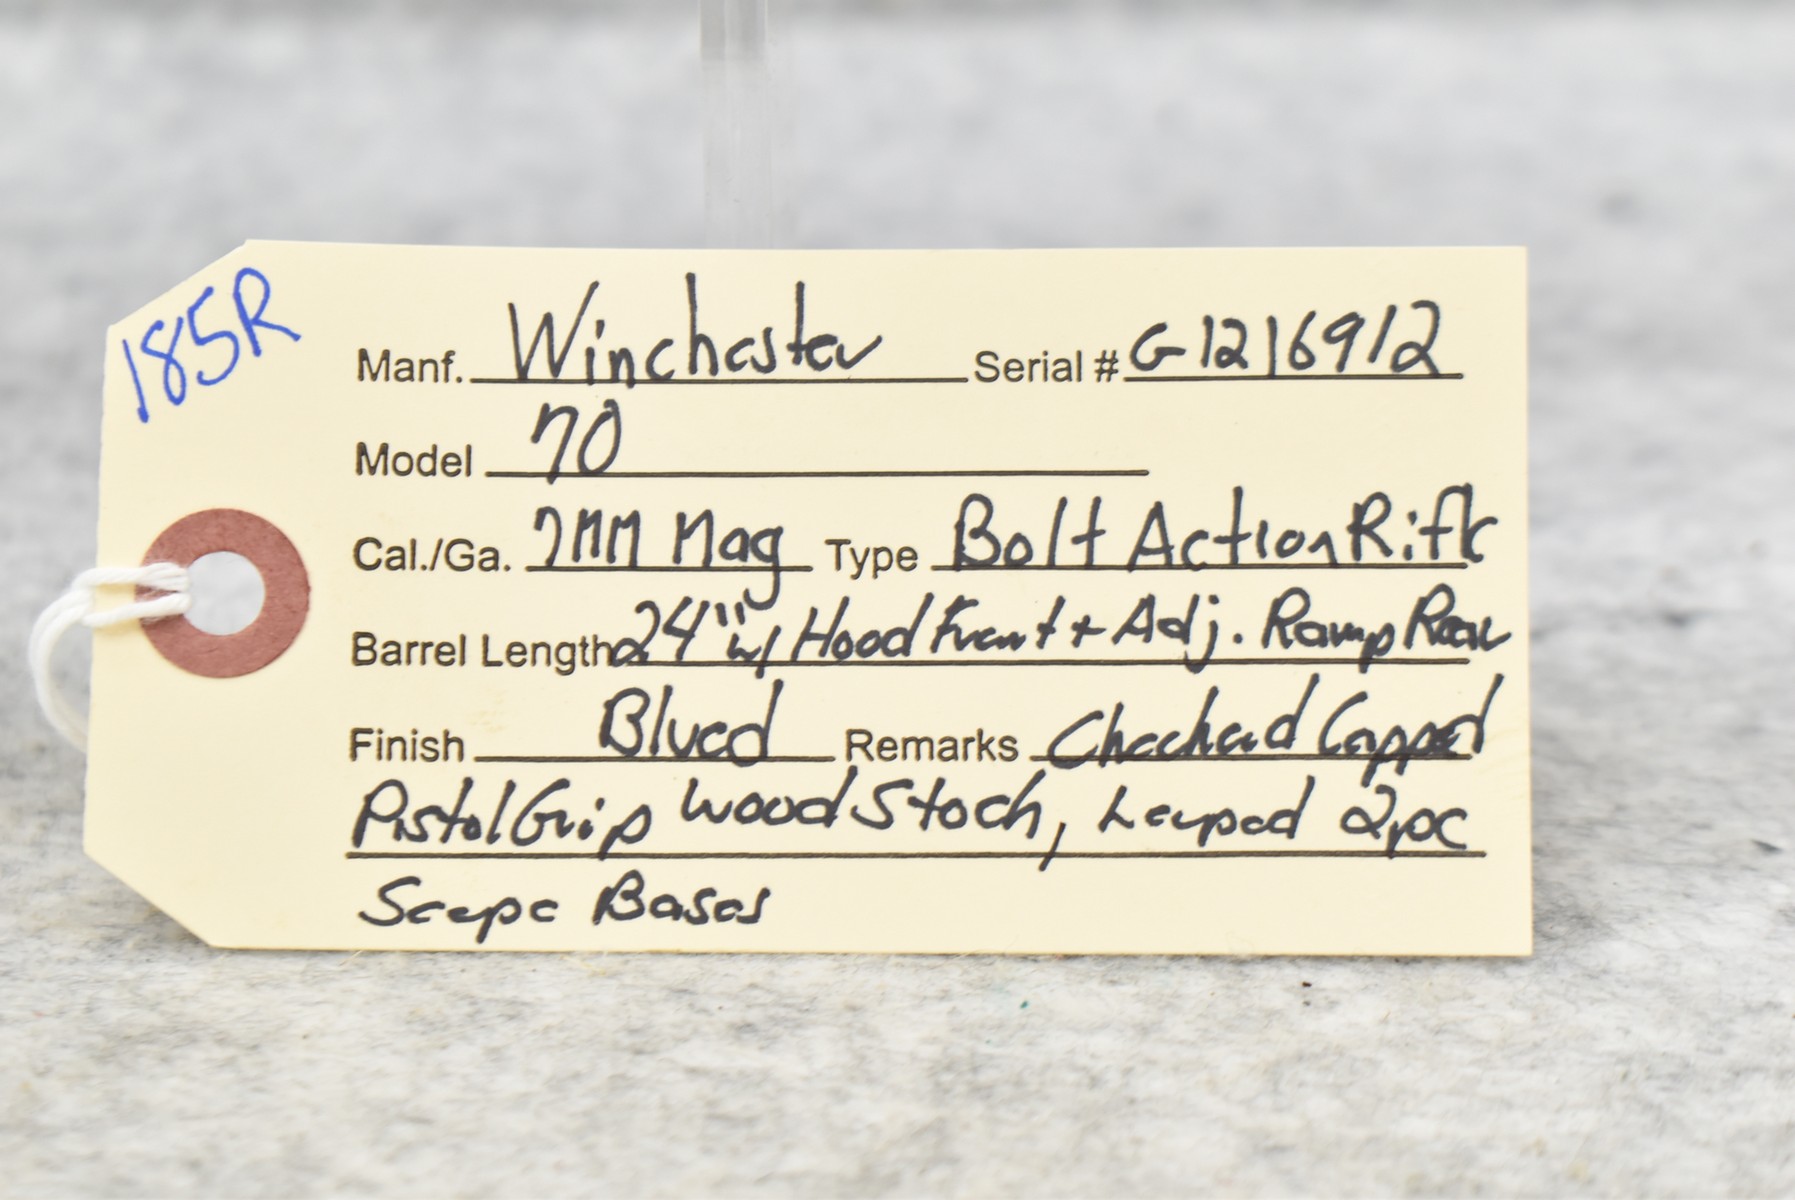 185R
Manf. Winchester Serial # G1216912
Model 70
Cal./Ga. 7MM Mag Type Bolt Action Rifle
Barrel Length 24" w/ Hood Front + Adj. Ramp Rear
Finish Blued Remarks Checkerd Capped
Pistol Grip Wood Stock, Leupod 2pc
Scope Bases